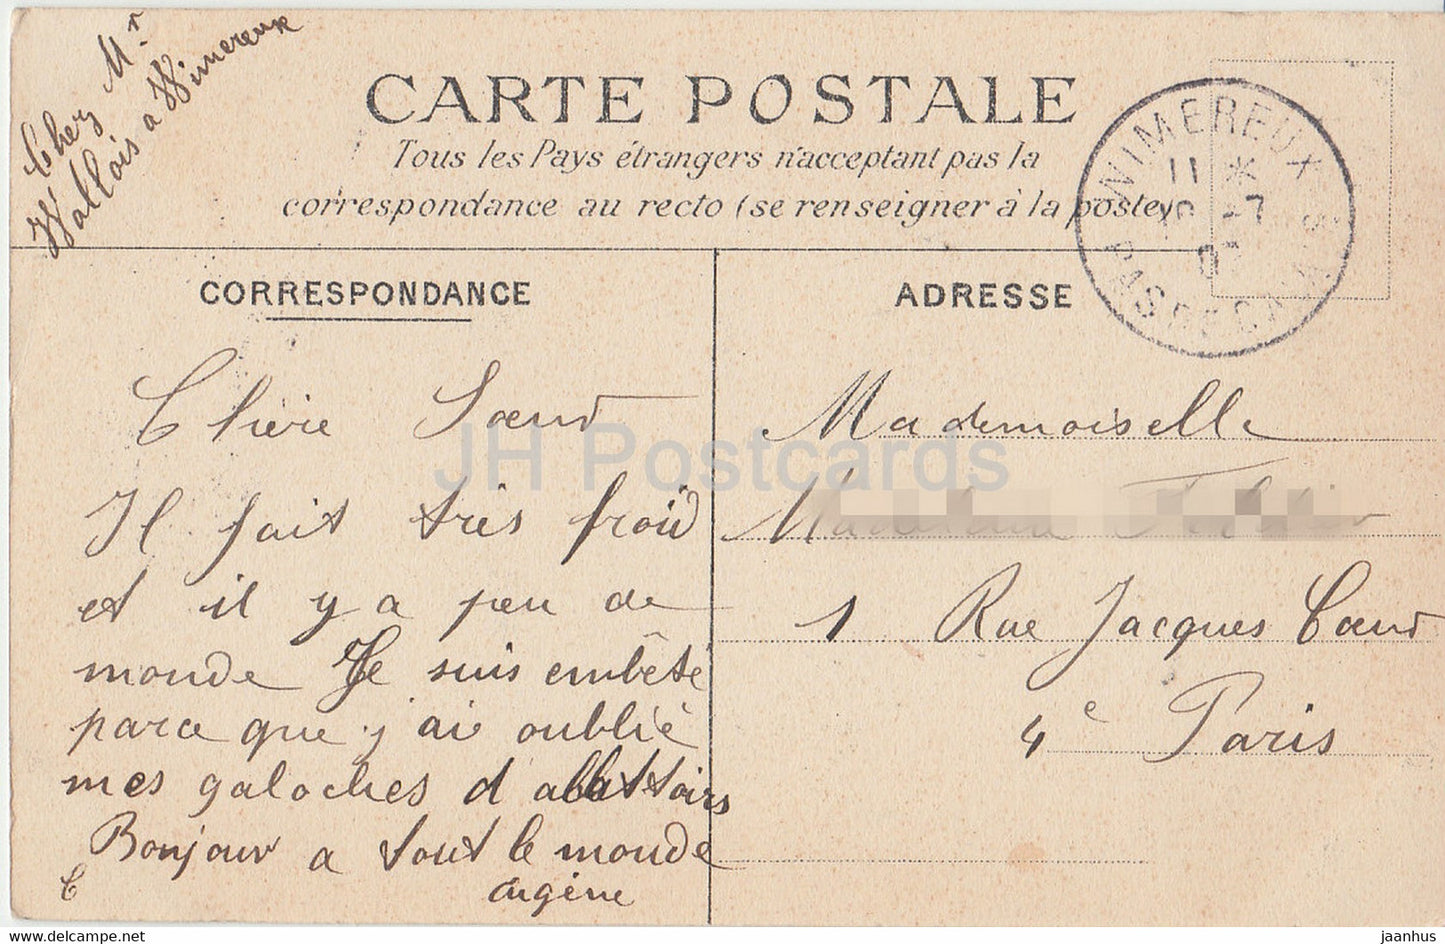 Chez Mr
Wallois a Wimereux
CARTE POSTALE
Tous les Pays étrangers n'acceptant pas la
correspondance au recto (se renseigner à la poste)
WIMEREUX
11 *
-7
PAS DE CALAIS
CORRESPONDANCE
ADRESSE
Chère Sœur
Il fait très froid
et il y a peu de
monde Je suis embêté
parce que j'ai oublié
mes galoches d abattoirs
Bonjour a tout le monde
Eugène
Mademoiselle
1 Rue Jacques Cœur
4e Paris
JH Postcards
www.delcampe.net
jaanhus